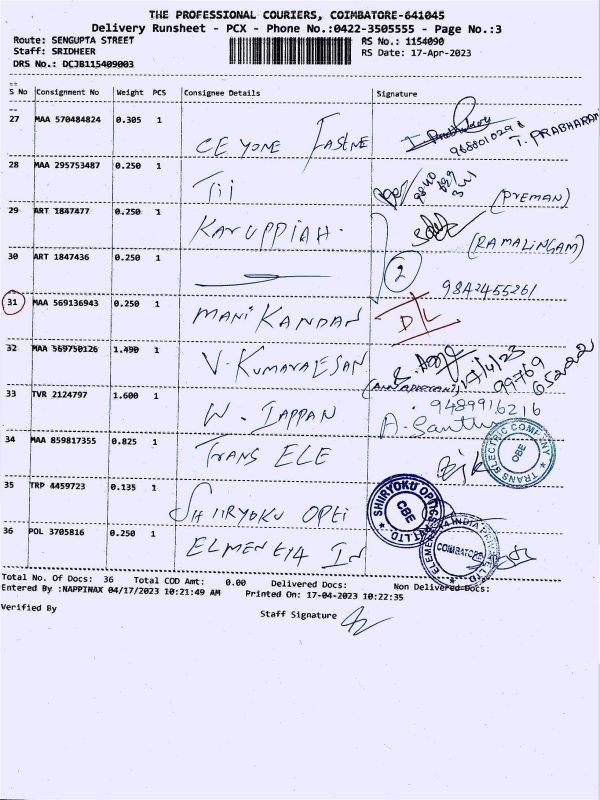 THE PROFESSIONAL COURIERS, COIMBATORE-641045
Delivery Runsheet - PCX - Phone No.:0422-3505555 - Page No.:3
Route: SENGUPTA STREET
RS No.: 1154090
Staff: SRIDHEER
RS Date: 17-Apr-2023
DRS No.: DCJB115409003
S No Consignment No Weight PCS Consignee Details Signature
27 MAA 570484824 0.305 1
T. PRABHARAN
28 MAA 295753487 0.250 1 Tii
(PREMAN)
29 ART 1847477 0.250 1 KARUPPIAH.
(RAMALINGAM)
30 ART 1847436 0.250 1 2
9842455261
31 MAA 569136943 0.250 1 MANI KANDAN D/L
32 MAA 569750126 1.490 1 V. KUMARAESAN
17/4/23
33 TVR 2124797 1.600 1 W. IAPPAN
9489916216
A. Santh
34 MAA 859817355 0.825 1 TRANS ELE
TRANS ELECTRIC COMPANY
CBE
35 TRP 4459723 0.135 1 SHIIRYOKU OPTI
SHIIRYOKU
CBE
36 POL 3705816 0.250 1
COIMBATORE
Total No. Of Docs: 36 Total COD Amt: 0.00 Delivered Docs: Non Delivered Docs:
Entered By :NAPPINAX 04/17/2023 10:21:49 AM Printed On: 17-04-2023 10:22:35
Verified By
Staff Signature